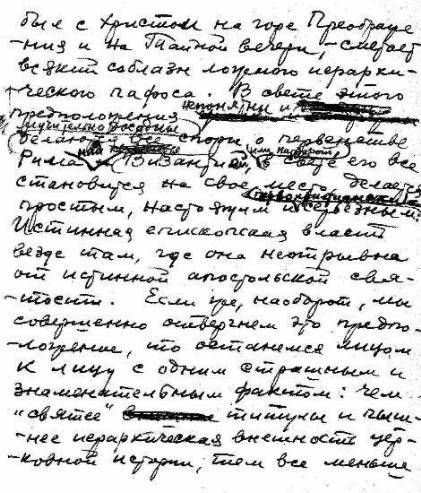 был с Христом на горе Преображе-
ния и на Тайной вечери, - сметает
всякий соблазн ложного иерархи-
ческого пафоса. В свете этого
предположения непонятны и
мучительно досадны
делаются все споры о первенстве
Рима Византией, в свете его все
становится на свое место, делается
простым, настоящим и серьезным.
Истинная епископская власть
везде там, где она неотрывна
от истинной апостольской свя-
-тости. Если же, наоборот, мы
совершенно отвергнем это предпо-
-ложение, то останемся лицом
к лицу с одним страшным и
знаменательным фактом: чем
"святее" титулы и пыш-
нее иерархическая внешность цер-
-ковной истории, тем все меньше